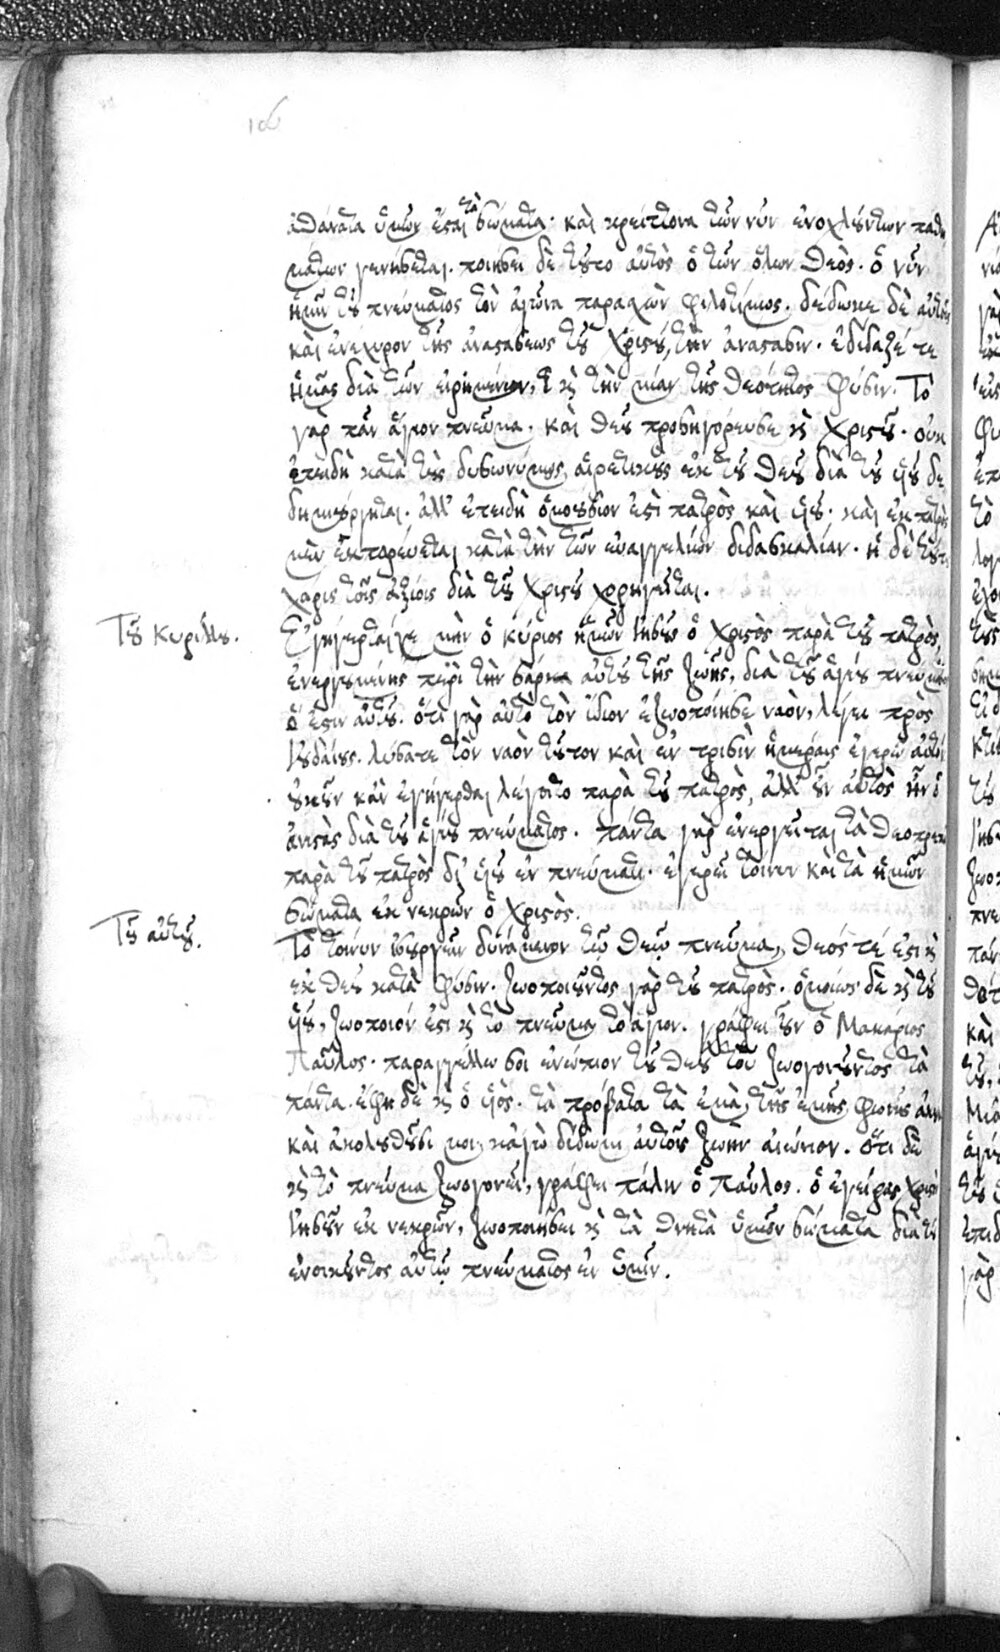 ἀθάνατα ὑμῶν ἔσται τὰ σώματα· καὶ κρείττονα τῶν νῦν ἐνοχλούντων παθη
μάτων γενήσεται. ποιήσει δὲ τοῦτο αὐτὸς ὁ τῶν ὅλων θεὸς· ὁ νῦν
ἡμῖν τοῦ πνεύματος τὸν παρασχὼν φιλοτίμως. δέδωκε δὲ αὐτοῖς
καὶ ἐνέχυρον τῆς ἀναστάσεως τοῦ Χριστοῦ, τὴν ἀνάστασιν· ἐδίδαξέ τε
ἡμᾶς διὰ τῶν εἰρημένων, κὶ τὴν μίαν τῆς θεότητος φύσιν. Τὸ
γὰρ πᾶν ἅγιον πνεῦμα· καὶ θεοῦ προσηγόρευσε κὶ Χριστοῦ· οὐκ
ἐπειδὴ κατὰ τοὺς δυσωνύμους αἱρετικοὺς ἐκ τοῦ θεοῦ διὰ τοῦ υἱοῦ δε
δημιούργηται. ἀλλ' ἐπειδὴ ὁμοούσιον ἐστὶ πατρὸς καὶ υἱοῦ· καὶ ἐκ πατρὸς
μὲν ἐκπορεύεται κατὰ τὴν τῶν εὐαγγελίων διδασκαλίαν· ἡ δὲ τούτου
χάρις τοῖς ἀξίοις διὰ τοῦ Χριστοῦ χορηγεῖται.
Τοῦ Κυρίλλου. Ἐγήγερται γε μὴν ὁ κύριος ἡμῶν Ἰησοῦς ὁ Χριστὸς παρὰ τοῦ πατρὸς,
ἐνεργουμένης περὶ τὴν σάρκα αὐτοῦ τῆς ζωῆς, διὰ τοῦ ἁγίου πνεύματος
ὅ ἐστιν αὐτοῦ. ὅτι γὰρ αὐτὸ τὸν ἴδιον ἐζωοποίησε ναὸν, λέγει πρὸς
Ἰουδαίους. λύσατε τὸν ναὸν τοῦτον καὶ ἐν τρισὶν ἡμέραις ἐγερῶ αὐτόν
οὐκοῦν κἂν ἐγήγερθαι λέγοιτο παρὰ τοῦ πατρὸς, ἀλλ' οὖν αὐτὸς ἦν ὁ
ἀνιστὰς διὰ τοῦ ἁγίου πνεύματος. πάντα γὰρ ἐνεργεῖται τὰ θεοπρεπῆ
παρὰ τοῦ πατρὸς δι' υἱοῦ ἐν πνεύματι. ἐγερεῖ τοίνυν καὶ τὰ ἡμῶν
σώματα ἐκ νεκρῶν ὁ Χριστὸς.
Τοῦ αὐτοῦ. Τὸ τοίνυν δυνάμενον τῷ θεῷ πνεῦμα, θεός τέ ἐστι κὶ
ἐκ θεοῦ κατὰ φύσιν. ζωοποιοῦντος γὰρ τοῦ πατρὸς. ὁμοίως δὲ κὶ τοῦ
υἱοῦ, ζωοποιόν ἐστι κὶ τὸ πνεῦμα τὸ ἅγιον. γράφει οὖν ὁ Μακάριος
Παῦλος· παραγγέλλω σοι ἐνώπιον τοῦ θεοῦ τοῦ ζωογονοῦντος τὰ
πάντα. ἔφη δὲ κὶ ὁ υἱὸς. τὰ πρόβατα τὰ ἐμὰ, τῆς ἐμῆς φωνῆς
καὶ ἀκολουθοῦσί μοι, κἀγὼ δίδωμι αὐτοῖς ζωὴν αἰώνιον. ὅτι δὲ
κὶ τὸ πνεῦμα ζωογονεῖ, γράφει πάλιν ὁ Παῦλος. ὁ ἐγείρας Χριστὸν
Ἰησοῦν ἐκ νεκρῶν, ζωοποιήσει κὶ τὰ θνητὰ ὑμῶν σώματα διὰ τοῦ
ἐνοικοῦντος αὐτῷ πνεύματος ἐν ὑμῖν.